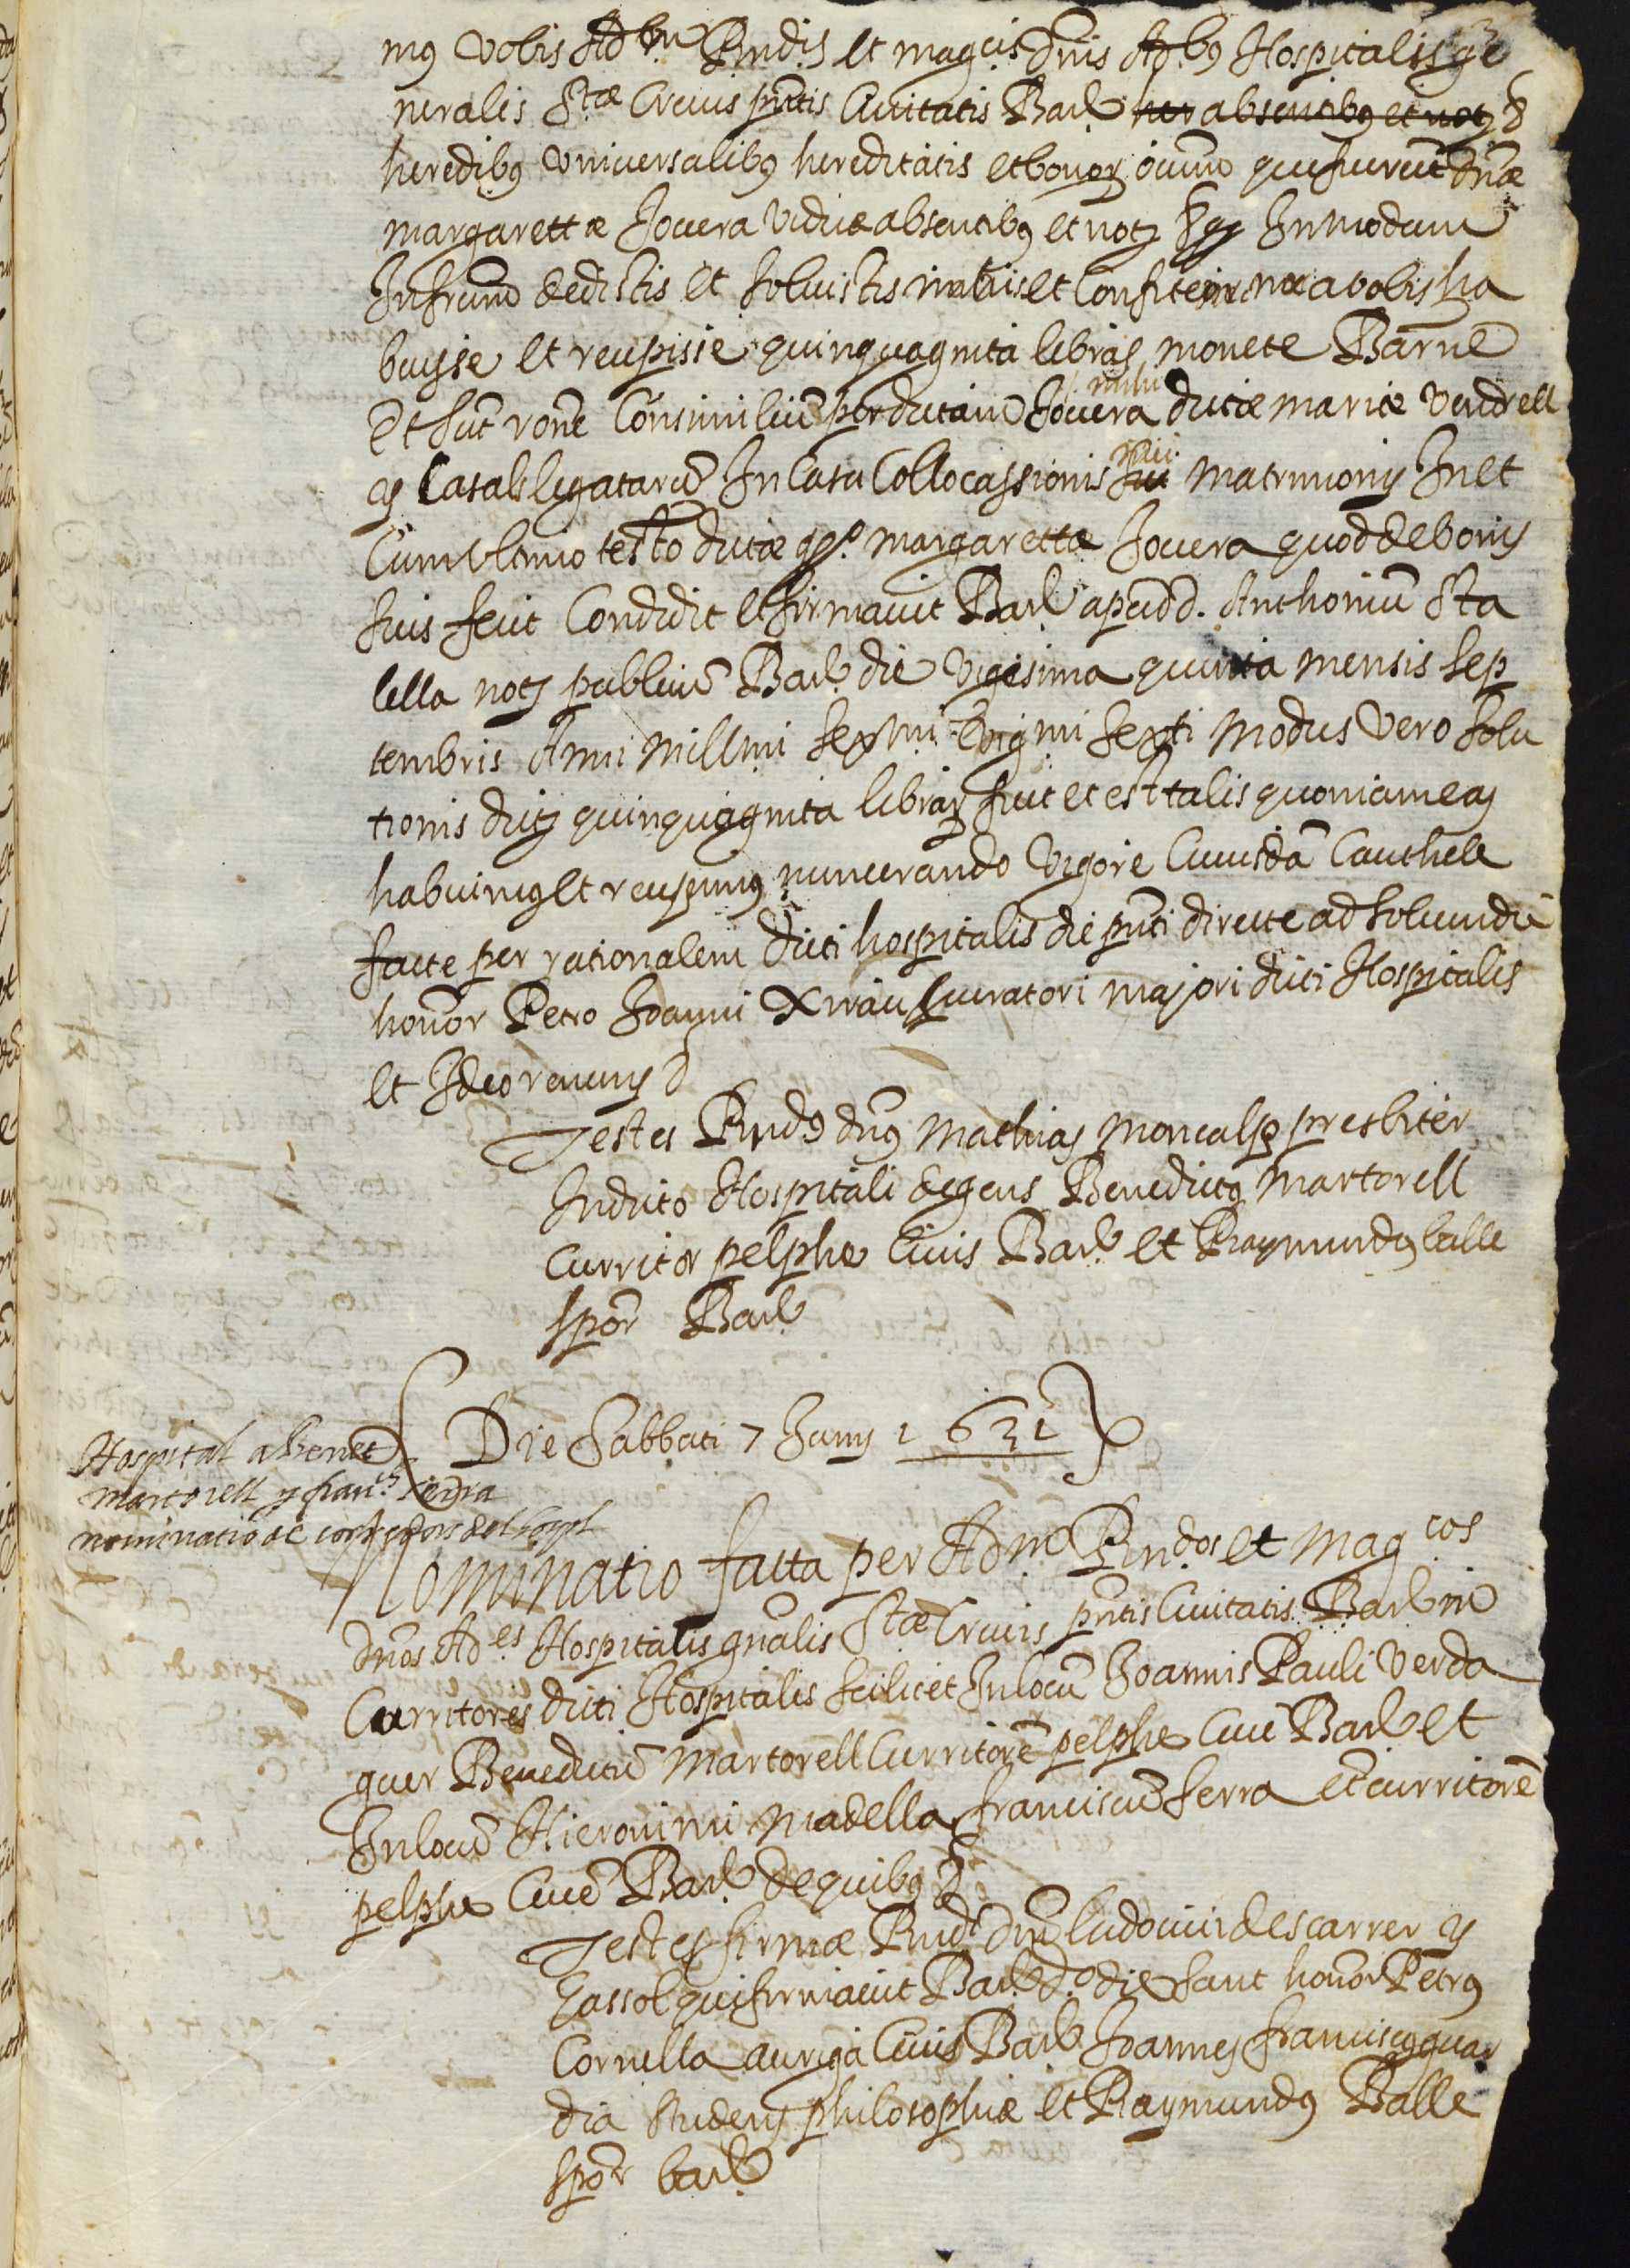 mꝰ vobis Adm. Rndis et magcis dnis Ad.bꝰ Hospitalis ge
neralis Stæ Crucis pntis Civitatis Bar absentibꝰ et not
heredibꝰ universalibꝰ hereditatis et bonoꝝ oium que fuerut dnæ
margarettæ Jovera viduæ absentibꝰ et notꝰ In modum
Infrum dedistis et solvistis et Confiteor me a vobis ha
buisse et recepisse quinquaginta libras monete Barne
Et sut rone Consimiliũ per dictam Jovera mihi dictæ mariæ vendrell
y Casals legatarũ In Casu Collocassionis mei matrimonij In et
Cum ultimo testo dictæ qo. margarettæ Jovera quod de bonis
suis fecit Condidit et firmavit Bar apud d. Anthoniũ Sta
lella notꝰ publicũ Bar die vigesima quinta mensis sep
tembris Anni millmi sexmi vigmi sexti modus vero solu
tionis dictꝝ quinquaginta libraꝝ fuit et est talis quoniam eas
habuimꝰ et recepimꝰ numerando vigore Cuiusdã Cauthele
facte per rationalem dicti hospitalis die pnti directe ad solvendũ
honor Petro Joanni Xirau procuratori majori dicti Hospitalis
et Ideo renuns
Testes Rndꝰ dnꝰ Mathias Moncalp presbiter
In dicto Hospitali degens Benedictꝰ Martorell
Curritor pelphe Civis Bar et Raymundꝰ balle
spor Bar
Die Sabbati 7 Junij 1631
Hospital a benet
martorell y franch serra
nominatió de corredors del hospl
Nominatio facta per Adm. Rndos et Magcos
dnos Ades Hospitalis gnalis Stæ Crucis pntis Civitatis Bar in
Curritores dicti Hospitalis scilicet In locũ Joannis Pauli Verda
guer Benedictũ Martorell Curritorẽ pelphe Civẽ Bar et
In locũ Hieronimi Madella franciscũ serra et curritorẽ
pelphe Civẽ Bar de quibꝰ
Testes firmæ Rndi dni ludovici descarrer y
Jassol qui firmavit Bar do die sunt honor Petrꝰ
Cornella auriga Civis Bar Joannes franciscꝰ guar
dia studens philosophiæ et Raymundꝰ Balle
spor bar